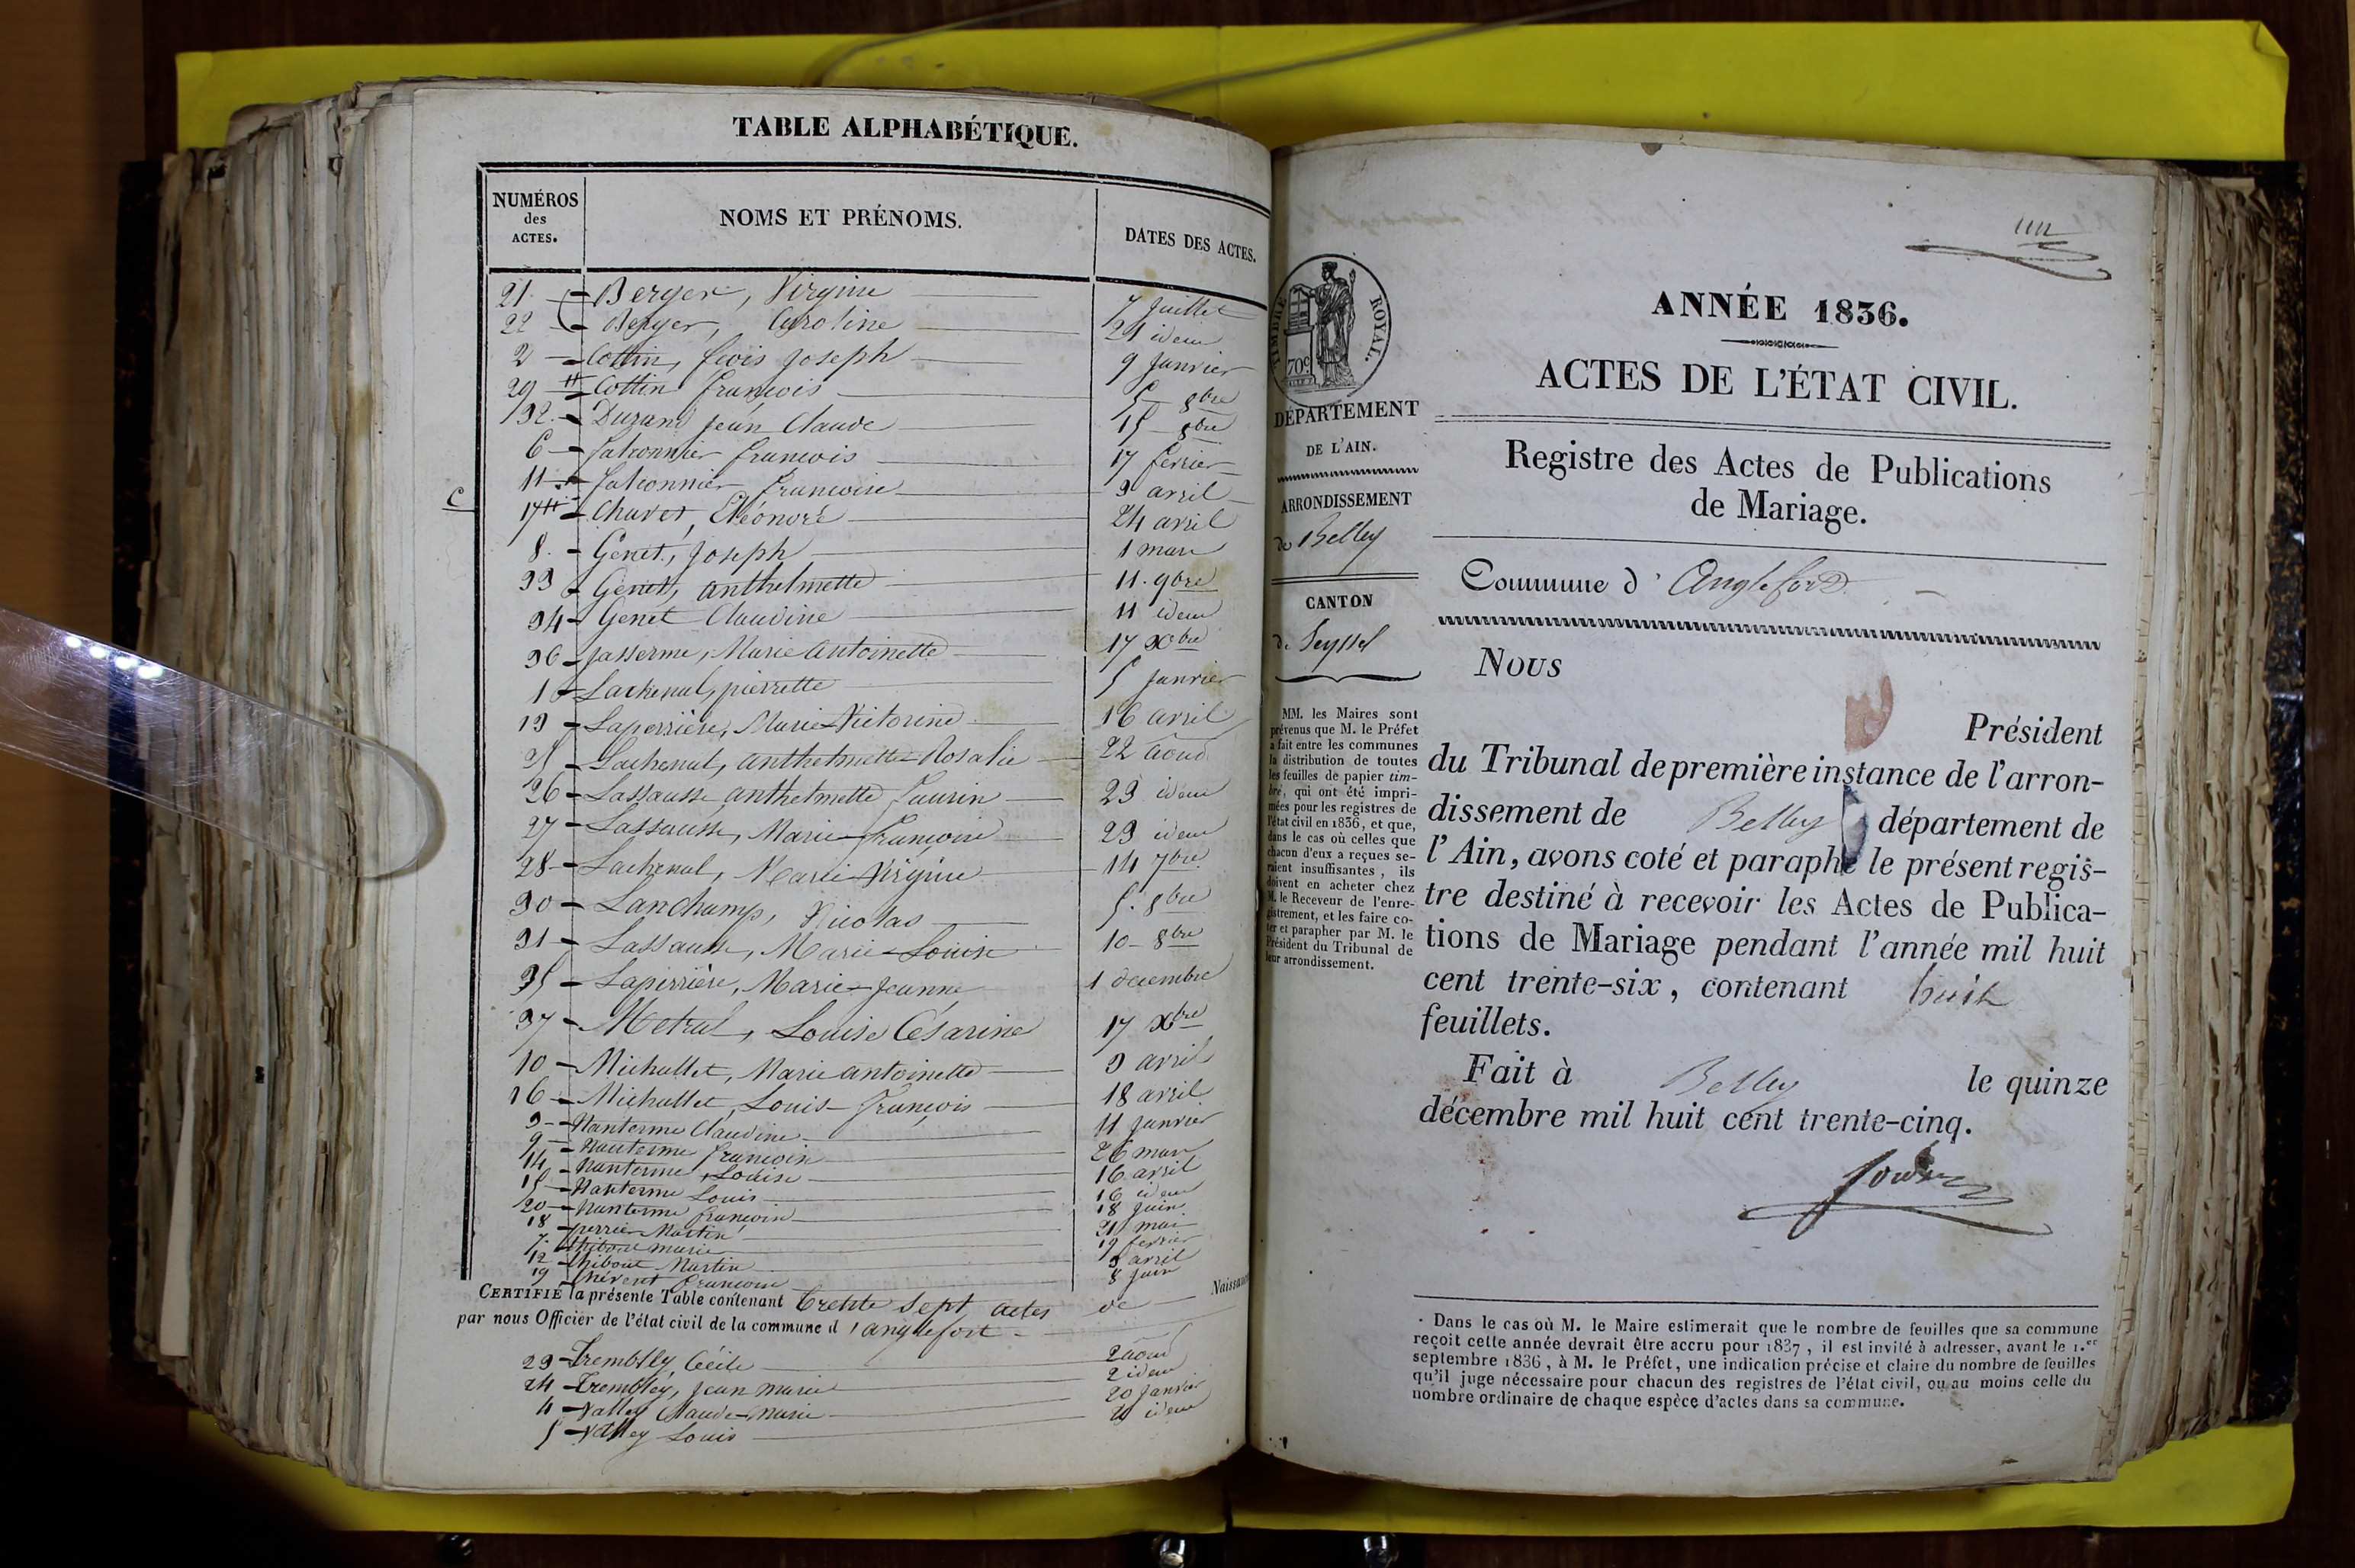 TABLE ALPHABÉTIQUE.
NUMÉROS des ACTES. NOMS ET PRÉNOMS. DATES DES ACTES.
21 - Berger, Virginie 7 Juillet
22 - Berger, Caroline 21 idem
2 - Cottin, Joseph 9 Janvier
29 - Cottin François 5 8bre
32 - Durand Jean Claude 15 8bre
6 - Falconnier François 17 fevrier
11 - Falconnier Françoise 9 avril
C 17 - Chavet, Eléonore 24 avril
8 - Genet, Joseph 1 mars
33 - Genet, anthelmette 11. 9bre
34 - Genet Claudine 11 idem
36 - Jasserme, Marie antoinette 17 Xbre
1 - Lachenal, pierrette 5 Janvier
13 - Laperrière, Marie-Victorine 16 avril
25 - Lachenal, anthelmette-Rosalie 22 aout
26 - Lassausse anthelmette 23 idem
27 - Lassausse, Marie-Françoise 23 idem
28 - Lachenal, Marie-Virginie 14 7bre
30 - Lanchamp, Nicolas 5. 8bre
31 - Lassausse, Marie-Louise 10 - 8bre
35 - Laperrière, Marie-Jeanne 1 decembre
37 - Metral, Louise Césarine 17 Xbre
10 - Michallet, Marie antoinette 9 avril
16 - Michallet, Louis-François 18 avril
3 - Nanterme Claudine 11 Janvier
9 - Nanterme 26 mars
14 - Nanterme, Louise 16 avril
15 - Nanterme Louis 16 idem
20 - Nanterme 18 Juin
18 - perrier Martin 21 mai
7 - thibout marie 19 fevrier
12 - thibout Martin 9 avril
19 - 8 Juin
CERTIFIÉ la présente Table contenant trente Sept actes de Naissance
par nous Officier de l'état civil de la commune d'anglefort
23 - Trembley, Cécile 2 aout
24 - Trembley, Jean marie 2 idem
4 - Valley Claude-Marie 20 Janvier
5 - Valley Louis idem
TIMBRE ROYAL.
70c
DÉPARTEMENT
DE L'AIN.
ARRONDISSEMENT
de Belley
CANTON
de Seyssel
MM. les Maires sont
prévenus que M. le Préfet
a fait entre les communes
la distribution de toutes
les feuilles de papier tim-
bré, qui ont été impri-
mées pour les registres de
l'état civil en 1836, et que,
dans le cas où celles que
chacun d'eux a reçues se-
raient insuffisantes, ils
doivent en acheter chez
M. le Receveur de l'enre-
gistrement, et les faire co-
ter et parapher par M. le
Président du Tribunal de
leur arrondissement.
ANNÉE 1836.
ACTES DE L'ÉTAT CIVIL.
Registre des Actes de Publications
de Mariage.
Commune d'Anglefort
Nous
Président
du Tribunal de première instance de l'arron-
dissement de Belley département de
l'Ain, avons coté et paraphé le présent regis-
tre destiné à recevoir les Actes de Publica-
tions de Mariage pendant l'année mil huit
cent trente-six, contenant huit
feuillets.
Fait à Belley le quinze
décembre mil huit cent trente-cinq.
Dans le cas où M. le Maire estimerait que le nombre de feuilles que sa commune
reçoit cette année devrait être accru pour 1837, il est invité à adresser, avant le 1.er
septembre 1836, à M. le Préfet, une indication précise et claire du nombre de feuilles
qu'il juge nécessaire pour chacun des registres de l'état civil, ou au moins celle du
nombre ordinaire de chaque espèce d'actes dans sa commune.